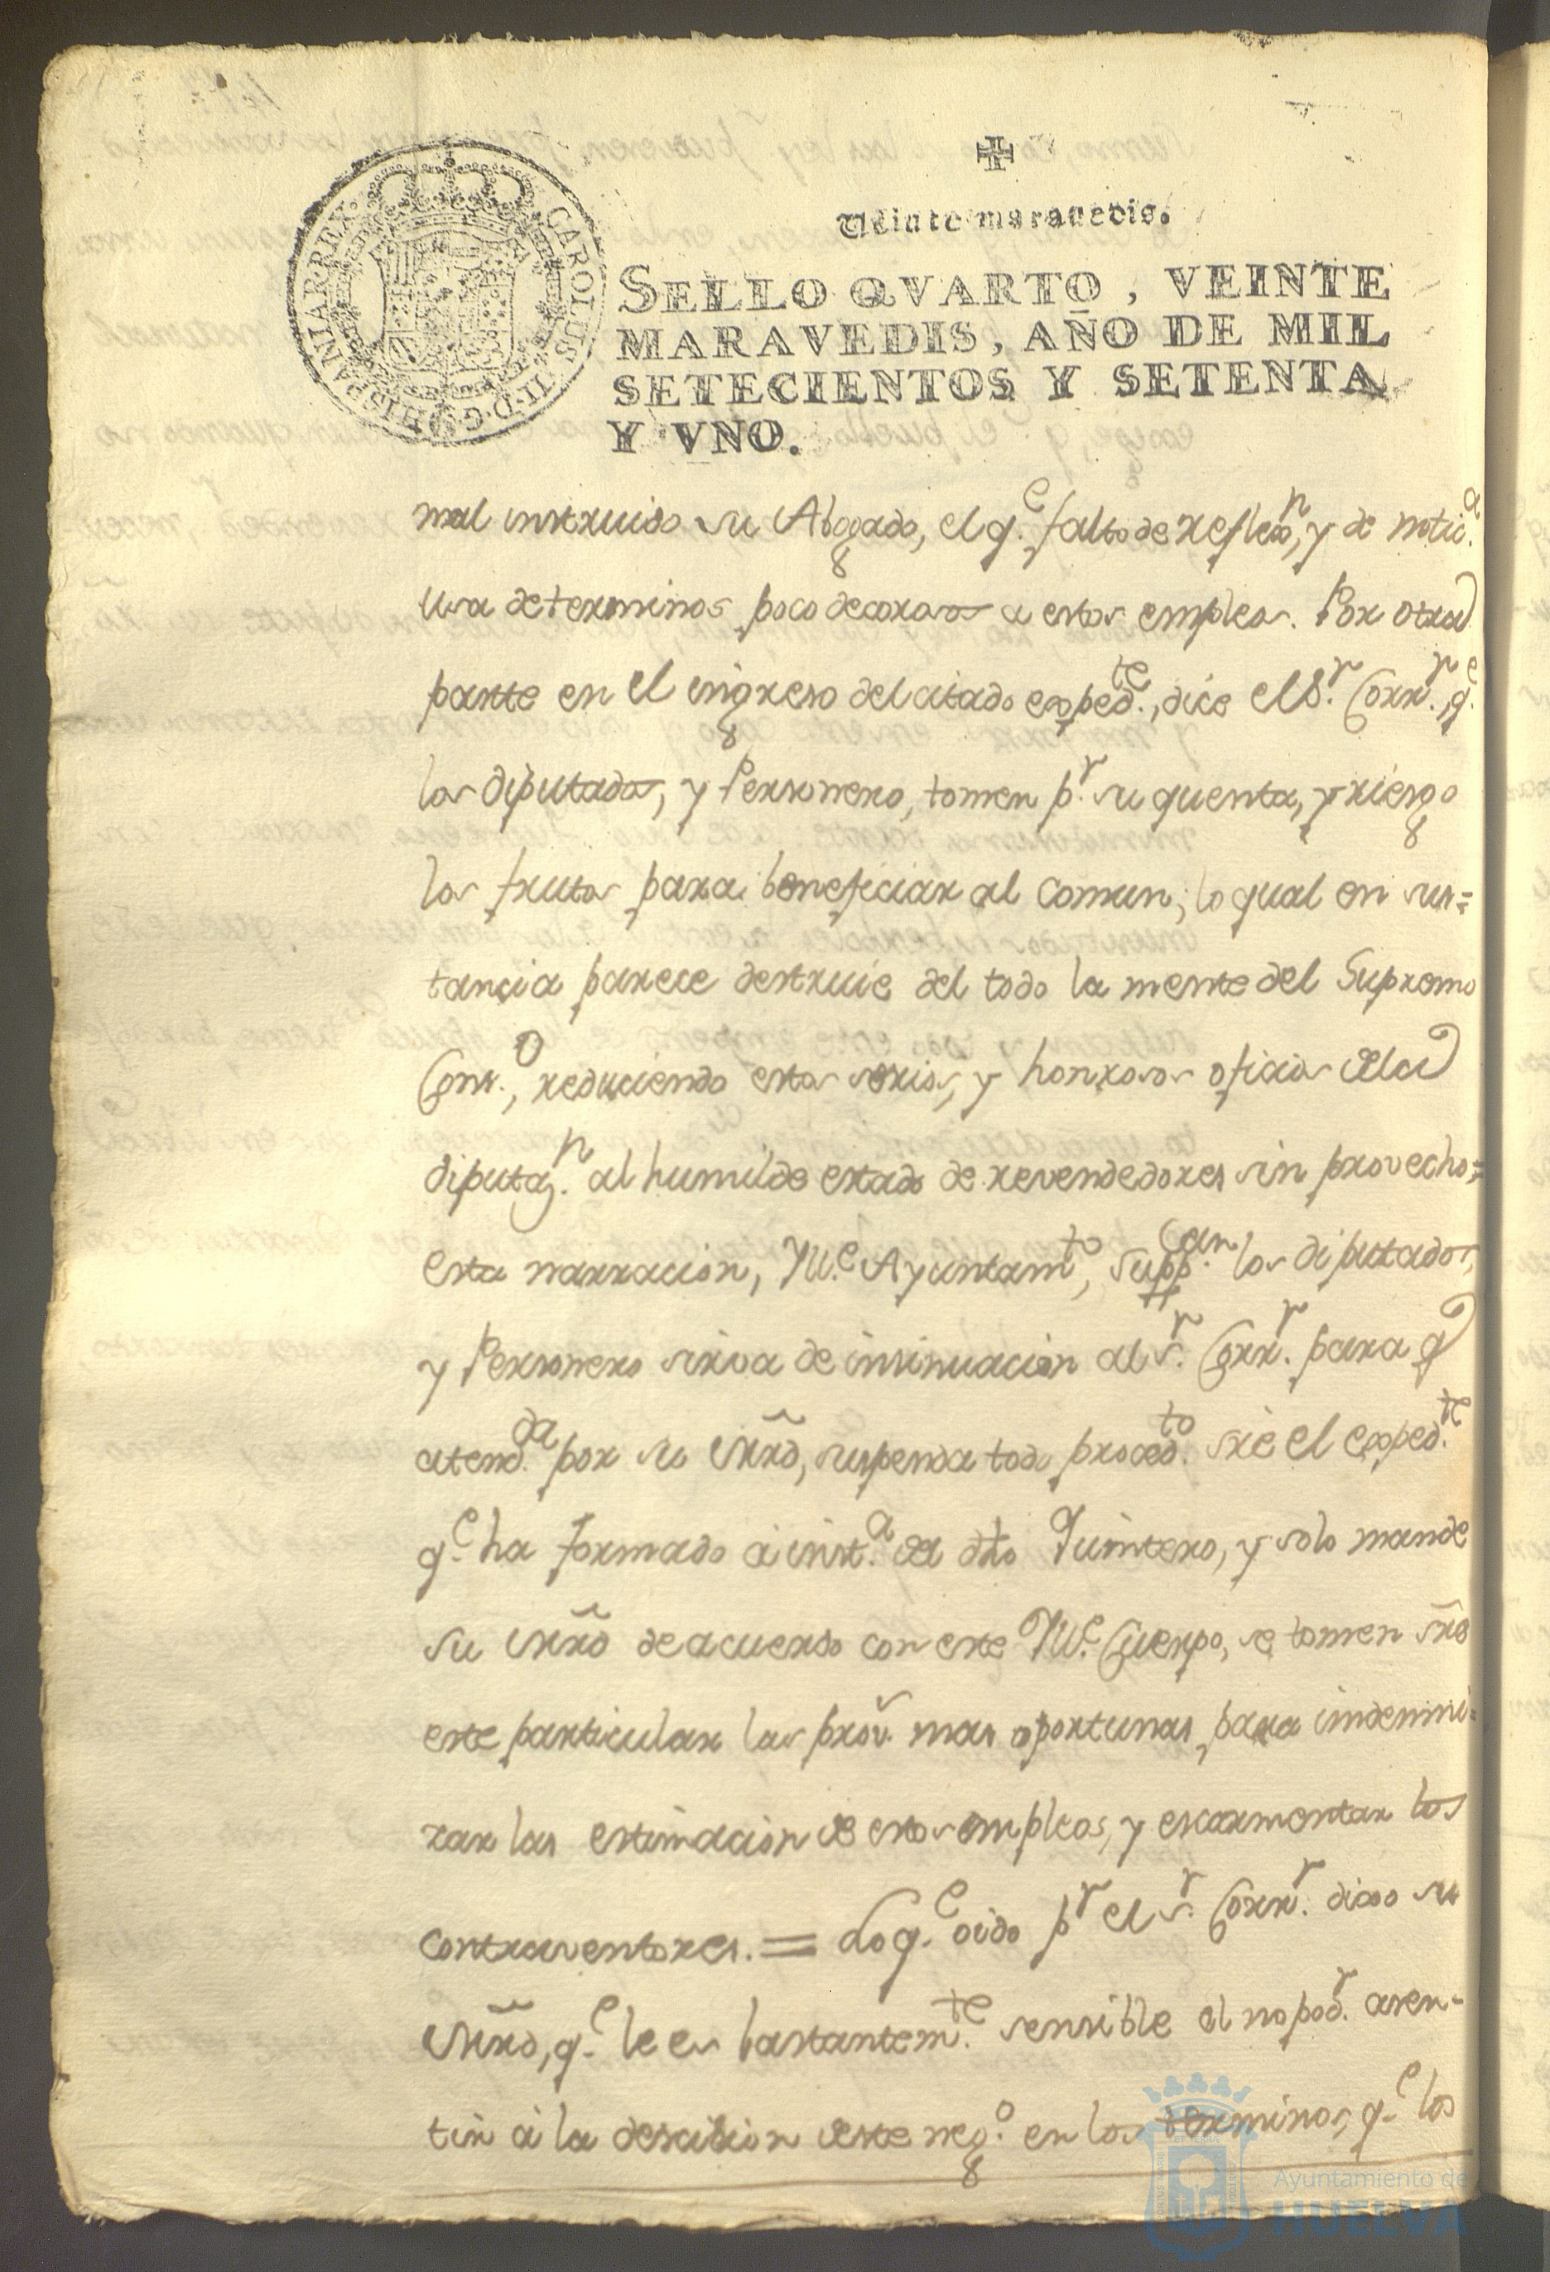 Veinte maravedis.
SELLO QVARTO, VEINTE
MARAVEDIS, AÑO DE MIL
SETECIENTOS Y SETENTA
Y VNO.
CAROLUS·III·D·G·HISPANIAR·REX·
mal instruido su Abogado, el q.e falto de reflex.n, y de notic.a
usa de terminos poco decorosos a estos empleos. Por otra
parte en el ingreso del citado exped.te, dice el S.r Corr.r q.e
los diputados, y Personero, tomen p.r su quenta, y riesgo
los frutos para beneficiar al Comun; lo qual en sus=
tancia parece destruie del todo la mente del Supremo
Cons.o, reduciendo estos serios, y honrosos oficios dela
diputaz.n al humilde estado de revendedores sin provecho=
esta narracion, Yll.e Ayuntam.to, supp.can los diputados,
y Personero sirva de insinuacion al s.r Corr.r para q
atend.da por su mrd, suspenda todo proced.to sre el exped.te
q.e ha formado á inst.a del dho Quintero, y solo mande
su mrd de acuerdo con este Yll.e Cuerpo, se tomen sre
este particular las prov. mas oportunas, para indemni=
zar las estimacion de estos empleos, y escarmentar los
contraventores. = Lo q.e oido p.r el s.r Corr.r dixo su
mrd, q.e le es bastantem.te sensible el no pod.r asen=
tir á la descision deste neg.o en los terminos, q.e los
Ayuntamiento de
HUELVA